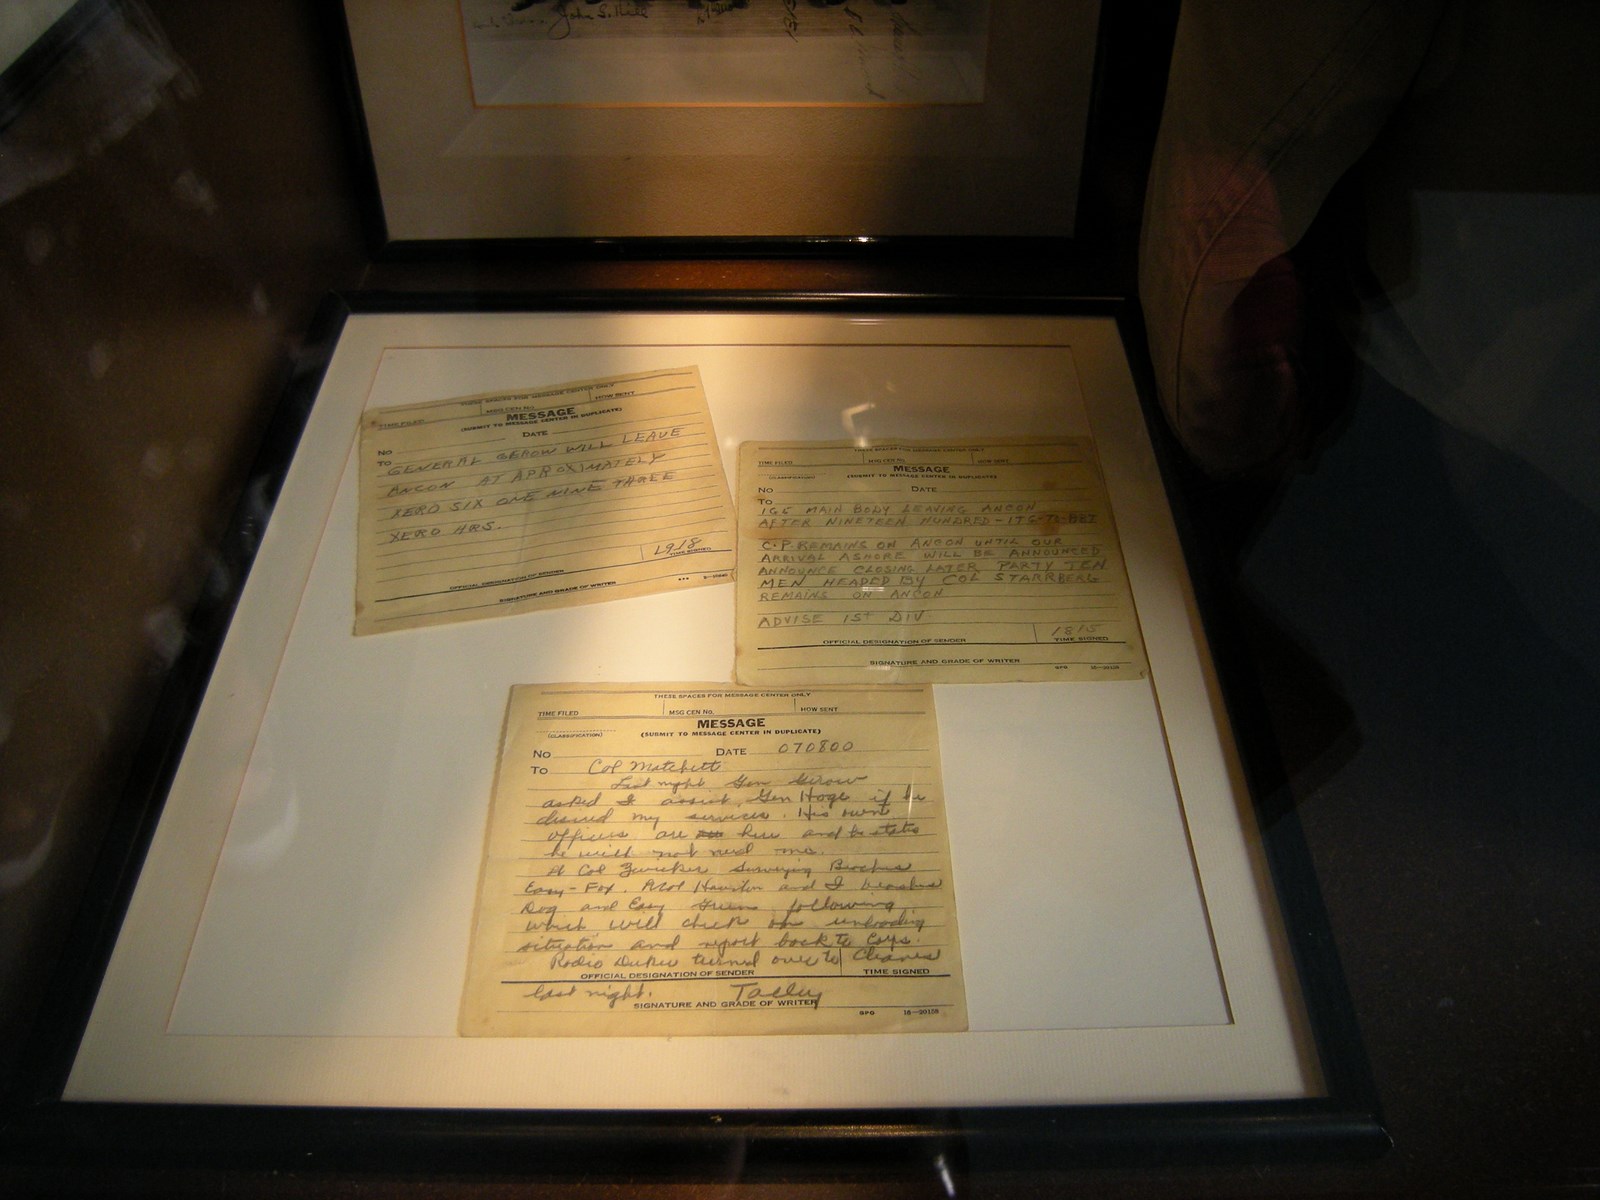 John S. Hill
THESE SPACES FOR MESSAGE CENTER ONLY
TIME FILED MSG CEN No. HOW SENT
MESSAGE
(SUBMIT TO MESSAGE CENTER IN DUPLICATE)
No DATE
To GENERAL GEROW WILL LEAVE
ANCON AT APROXIMATELY
XERO SIX ONE NINE THREE
XERO HRS.
1918
TIME SIGNED
OFFICIAL DESIGNATION OF SENDER
SIGNATURE AND GRADE OF WRITER
THESE SPACES FOR MESSAGE CENTER ONLY
TIME FILED MSG CEN No. HOW SENT
MESSAGE
(CLASSIFICATION) (SUBMIT TO MESSAGE CENTER IN DUPLICATE)
No DATE
To
MAIN BODY LEAVING ANCON
AFTER NINETEEN HUNDRED
C.P. REMAINS ON ANCON UNTIL OUR
ARRIVAL ASHORE WILL BE ANNOUNCED
ANNOUNCE CLOSING LATER PARTY TEN
MEN HEADED BY COL STARRBERG
REMAINS ON ANCON
ADVISE 1ST DIV
1815
OFFICIAL DESIGNATION OF SENDER TIME SIGNED
SIGNATURE AND GRADE OF WRITER GPO
THESE SPACES FOR MESSAGE CENTER ONLY
TIME FILED MSG CEN No. HOW SENT
MESSAGE
(CLASSIFICATION) (SUBMIT TO MESSAGE CENTER IN DUPLICATE)
No DATE 070800
To Col Matchett
Last night Gen Gerow
asked I assist Gen Hoge if he
desired my services. His own
officers are here and he states
he will not need me.
Lt Col Zwicker surveying Beaches
Easy-Fox. Houston and I beaches
Dog and Easy Green following
which will check on unloading
situation and report back to Corps.
Radio Dukw turned over to Cleaves
OFFICIAL DESIGNATION OF SENDER TIME SIGNED
last night. Talley
SIGNATURE AND GRADE OF WRITER
GPO 16—20159